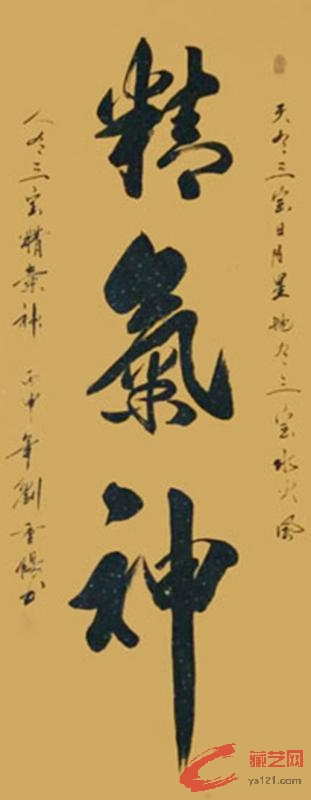 天有三宝日月星地有三宝水火風
精氣神
人有三宝精氣神 丙申年劉
藏艺网
ys121.com